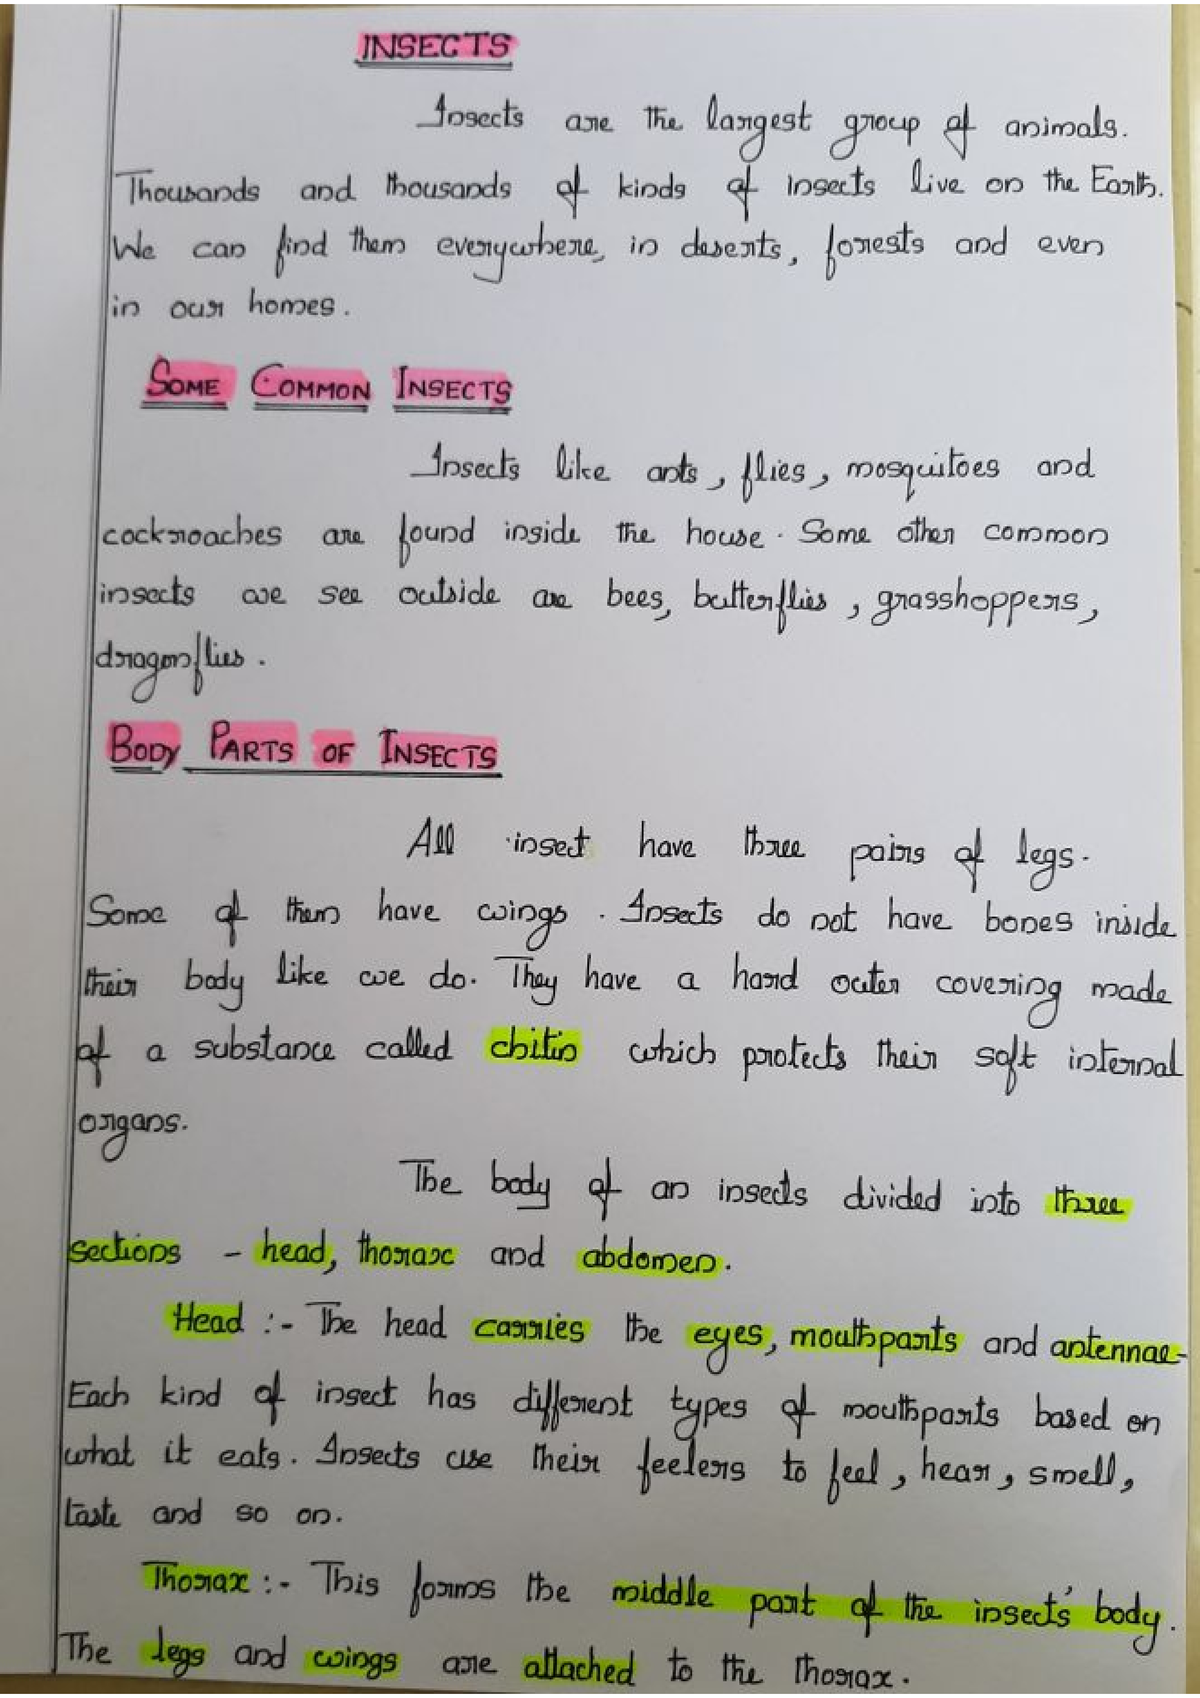 INSECTS
Insects are the largest group of animals.
Thousands and thousands of kinds of insects live on the Earth.
We can find them everywhere, in deserts, forests and even
in our homes.
SOME COMMON INSECTS
Insects like ants, flies, mosquitoes and
cockroaches are found inside the house. Some other common
insects we see outside are bees, butterflies, grasshoppers,
dragonflies.
BODY PARTS OF INSECTS
All insect have three pairs of legs.
Some of them have wings. Insects do not have bones inside
their body like we do. They have a hard outer covering made
of a substance called chitin which protects their soft internal
organs.
The body of an insects divided into three
sections - head, thorax and abdomen.
Head :- The head carries the eyes, mouthparts and antennae-
Each kind of insect has different types of mouthparts based on
what it eats. Insects use their feelers to feel, hear, smell,
taste and so on.
Thorax :- This forms the middle part of the insects' body.
The legs and wings are attached to the thorax.